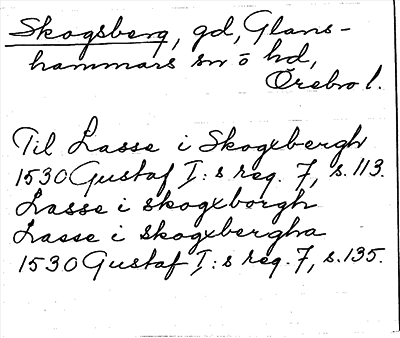 Skogsberg, gd, Glans-
hammars sn ö hd,
Örebro l.
Til Lasse i Skogxbergh
1530 Gustaf I:s reg. 7, s. 113.
Lasse i skogxborgh
Lasse i skogxbergha
1530 Gustaf I:s reg. 7, s. 135.